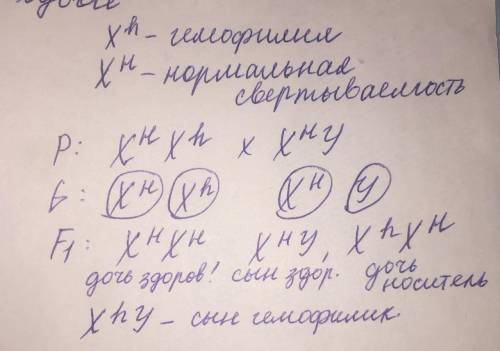 X^h - гемофилия
X^H - нормальная
свертываемость
P: X^H X^h x X^H y
G: X^H X^h X^H y
F1: X^H X^H X^H y, X^h X^H
дочь здоров! сын здор. дочь
носитель
X^h y - сын гемофилик.